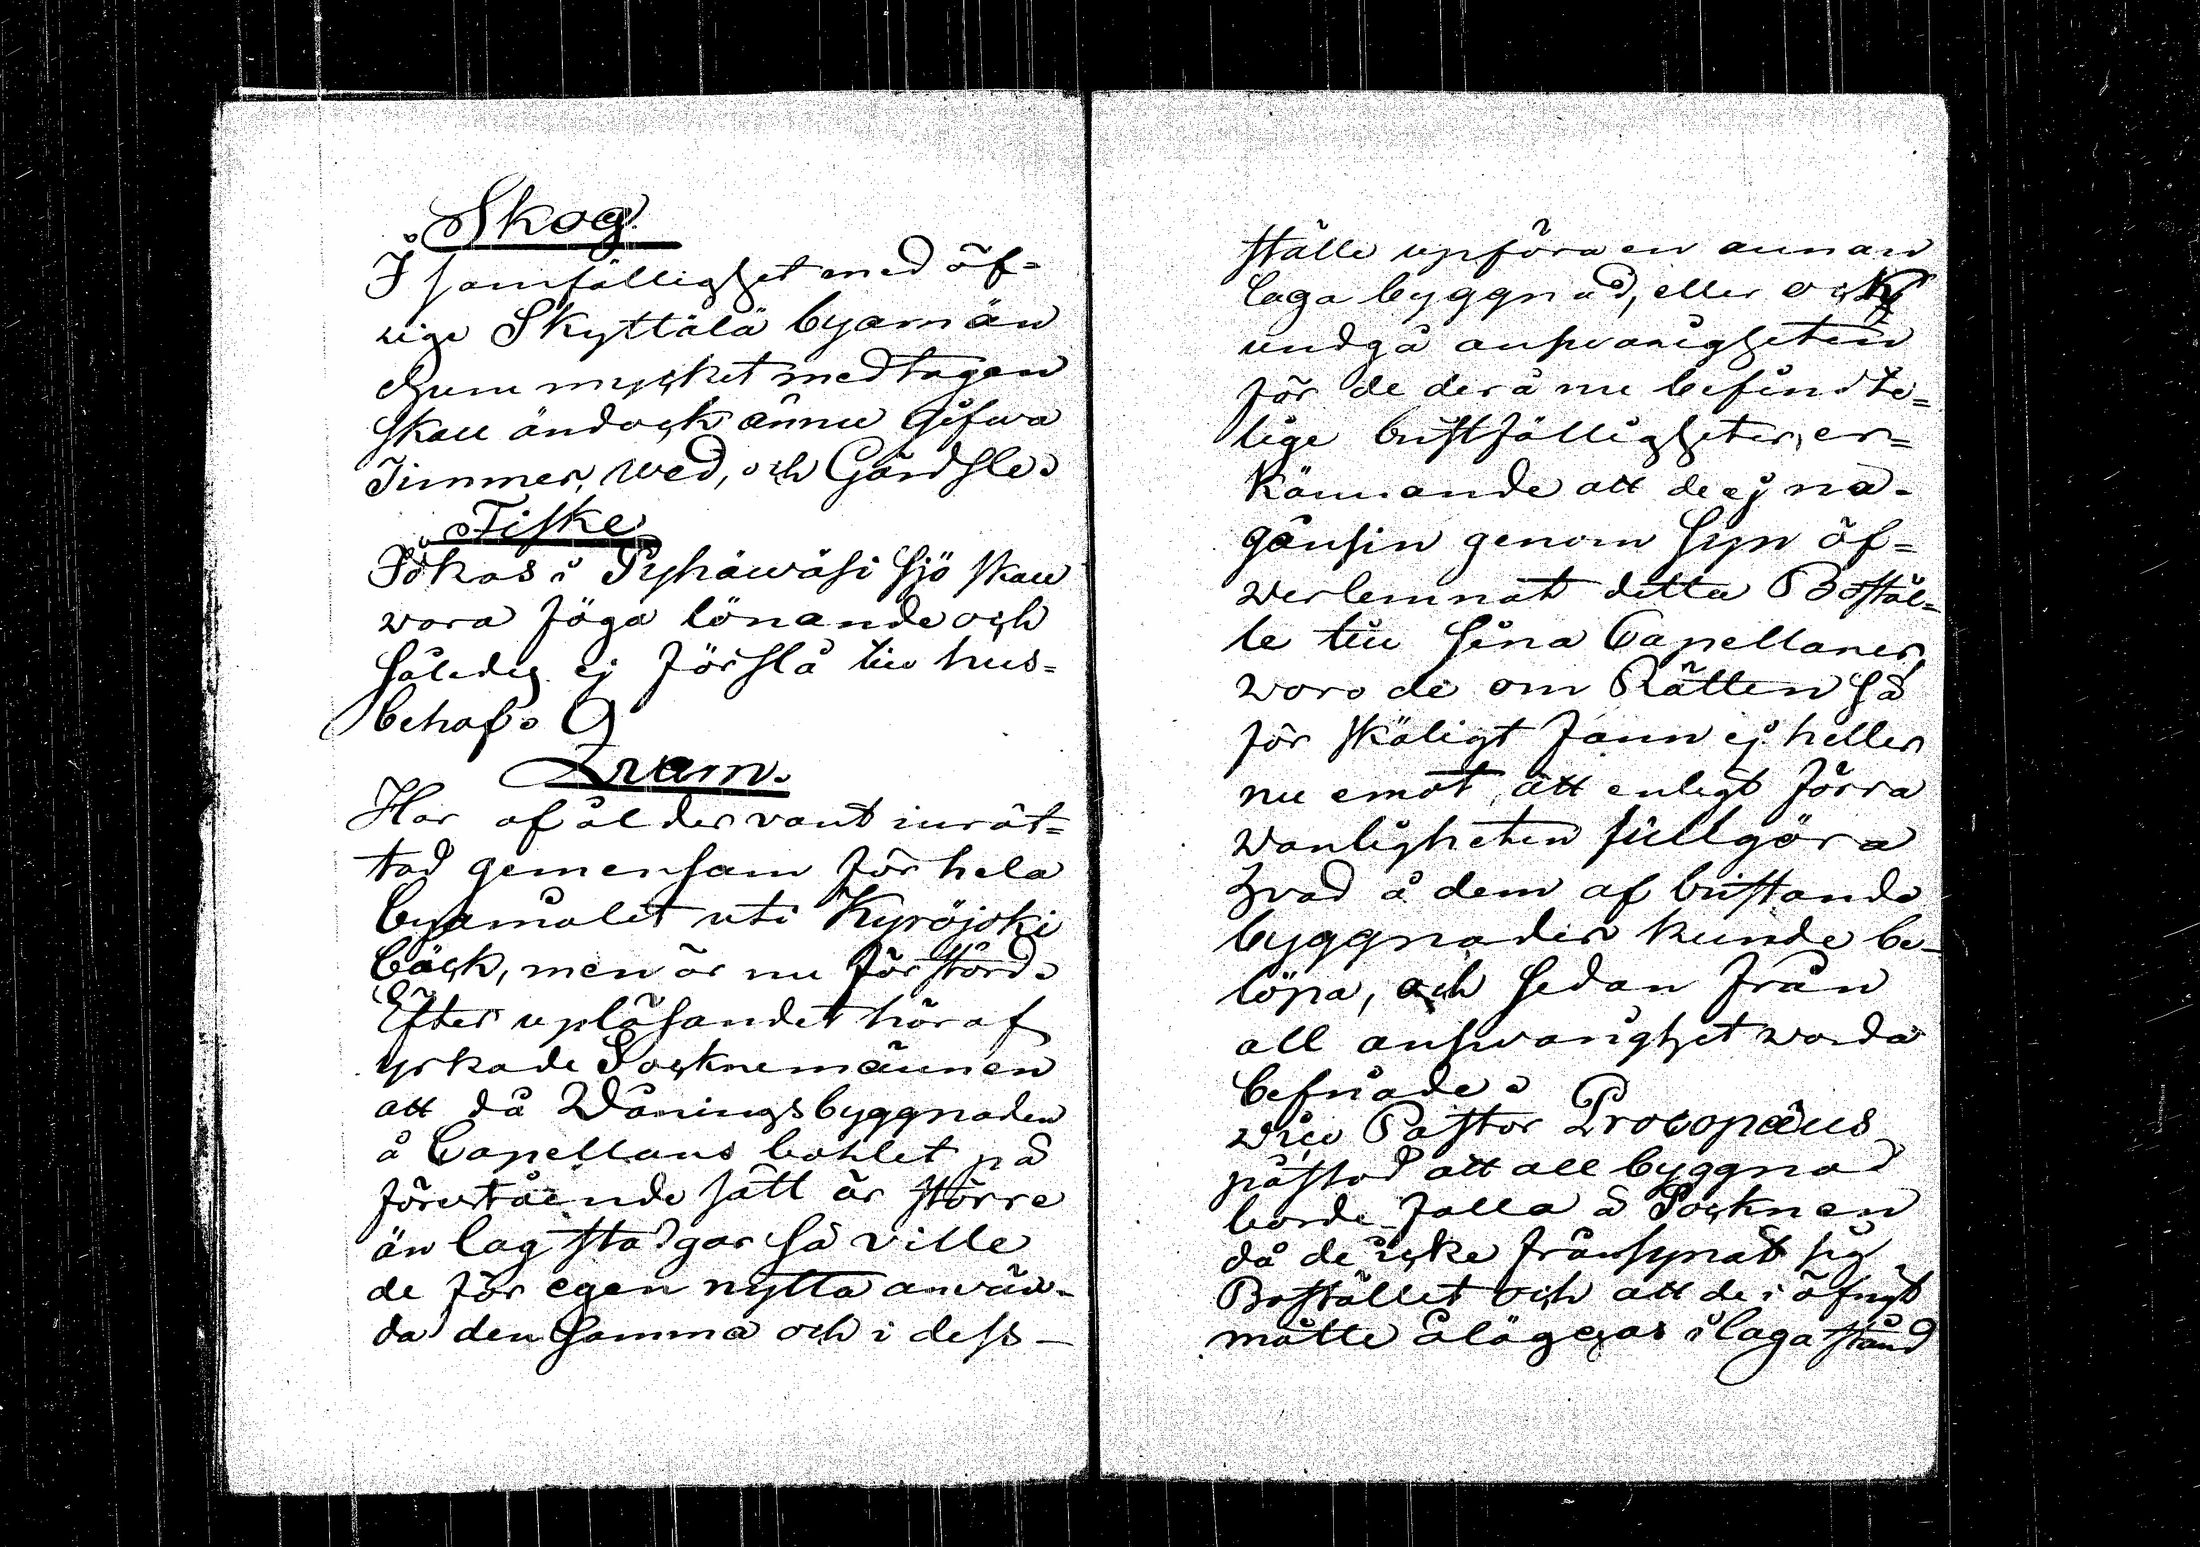 Skog.
I samfällighet med öf-
rige Skyttälä byamän
ehuru mycket medtagen
skall ändock ännu gifwa
Timmer, wed, och Gärdsle.
Fiske
Idkas i Pyhäwäsi Sjö skall
wara föga lönande och
således ej förslå till hus-
behof.
Qvarn.
Har af ålder varit inrät-
tad gemensam för hela
byamålet uti Kyröjoki
bäck, men är nu förstörd.
Efter upläsandet häraf
yrkade Socknemännen
att då Wåningsbyggnaden
å Capellans bohlet på
förestående sätt är större
än lag stadgar så ville
de för egen nytta använ-
da densamma och i dess
ställe upföra en annan
laga byggnad, eller ock
undgå answarigheten
för de derå nu befindte-
lige bristfälligheter, er-
kännande att de ej nå-
gonsin genom Syn öf-
werlemnat detta Boställ-
le till sina Capellaner,
woro de om Rätten så
för skäligt fann ej heller
nu emot att enligt förra
wanligheten fullgöra
hvad å dem af bristande
byggnader kunde be-
löpa, och sedan från
all answarighet worda
befriade.
wice Pastor Procopæus
påstod att all byggnad
borde falla å Socknen
då de icke frånsynat sig
Bostället och att de i öfrigt
måtte åläggas i laga stånd